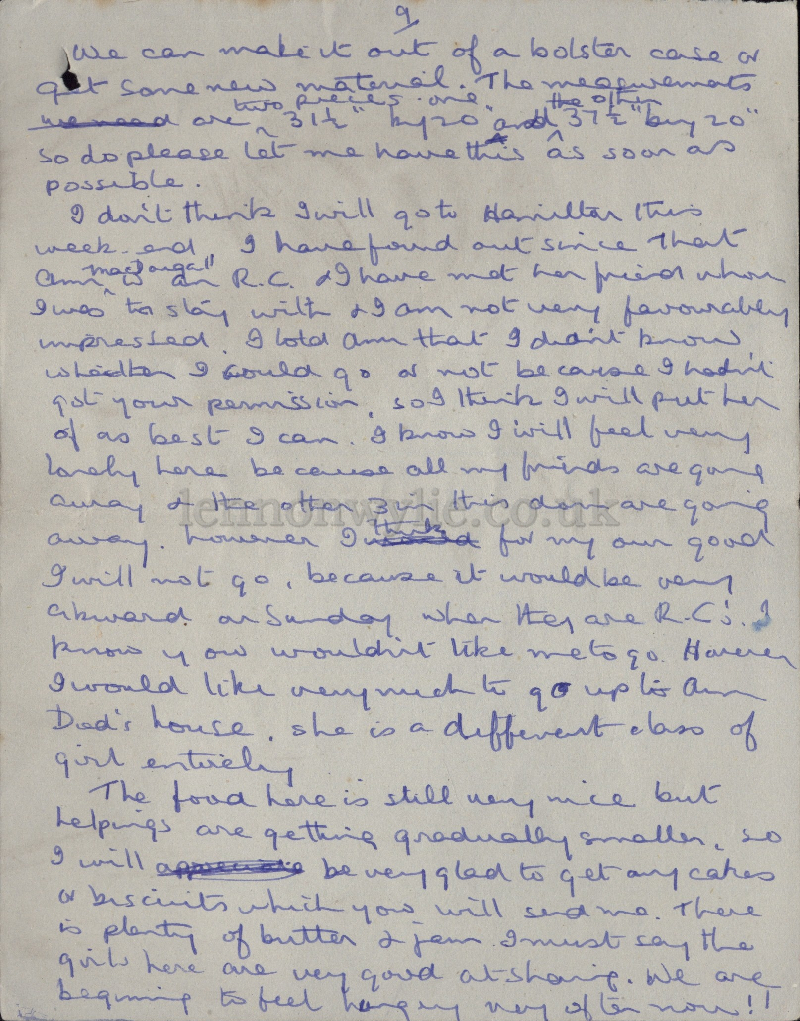 9
We can make it out of a bolster case or
get some new material. The measurements
two pieces one the other
we need are ^ 31½" by 20" and ^ 37½" by 20"
so do please let me have this as soon as
possible.
I don't think I will go to Hamilton this
week-end, I have found out since that
MacDougall
Ann ^ is an R.C. & I have met her friend whom
I was to stay with & I am not very favourably
impressed. I told Ann that I didn't know
whether I could go or not because I hadn't
got your permission, so I think I will put her
of as best I can. I know I will feel very
lonely here because all my friends are going
away & the other 3 in this dorm are going
think
away. However I for my own good
I will not go, because it would be very
akward on Sunday when they are R.C's. I
know you wouldn't like me to go. However
I would like very much to go up to Ann
Dod's house, she is a different class of
girl entirely
The food here is still very nice but
helpings are getting gradually smaller, so
I will appreciate be very glad to get any cakes
or biscuits which you will send me. There
is plenty of butter & jam. I must say the
girls here are very good at sharing. We are
beginning to feel hungry very often now!!
lennonwylie.co.uk